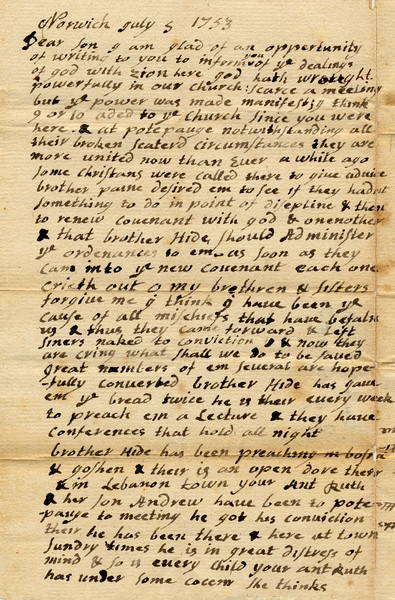 Norwich July 5 1753
Dear Son I am glad of an oppertunity
of writing to you to inform you of ye dealings
of god with zion here god hath wrought
powerfully in our Church: scarce a meeting
but ye power was made manifest I think
9 or 10 aded to ye Church since you were
here. & at potepauge notwithstanding all
their broken scaterd circumstances they are
more united now than Ever a while ago
some Christans were called there to give advice
brother paine desired em to see if they had not
something to do in point of diseptine & then
to renew Couenant with god & oneonther
& that brother Hide should Ad minister
ye ordenances to em as soon as they
Cam into ye new couenant each one
crieth out o my brethren & Sisters
forgive me I think I have been ye
cause of all mischiefs that have befaln
us & thus they came forward & left
siners naked to conviction & now they
are cring what shall we do to be saued
great numbers of em seueral are hope
-fully conuerted brother Hide has gave
em ye bread twice he is their every week
to preach em a Lecture & they have
conferences that hold all night
brother Hide has been preaching in
& goshen & their is an open dore there
& in Lebanon town your Ant Ruth
& her Son Andrew have been to pote-
pauge to meeting he got his conviction
their he has been there & here at town
sundry times he is in great distress of
mind & so is every Child your ant Ruth
has under some cocern she thinks